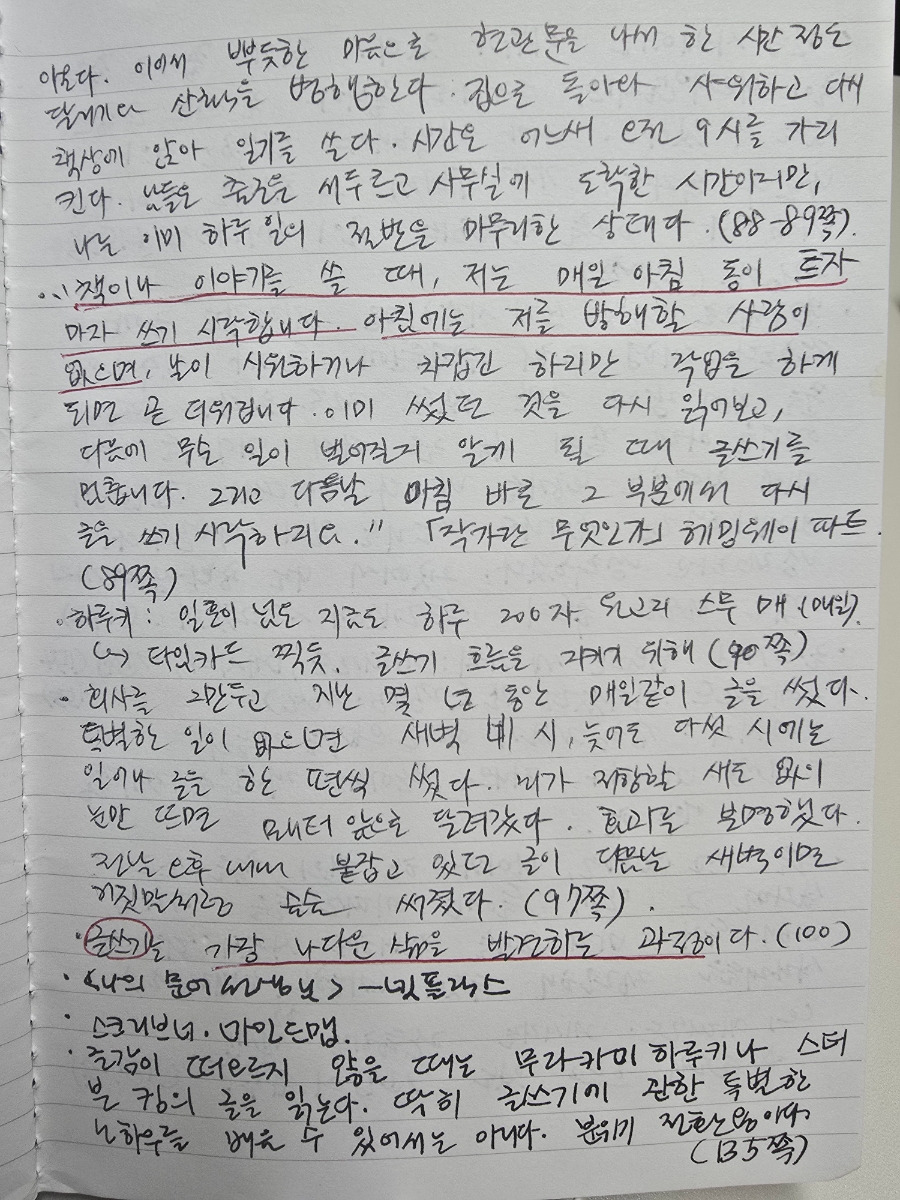 이른다. 이어서 뿌듯한 마음으로 현관문을 나서 한 시간 정도
달리기나 산책을 병행한다. 집으로 돌아와 샤워하고 다시
책상에 앉아 일기를 쓴다. 시간은 어느새 오전 9시를 가리
킨다. 남들은 출근을 서두르고 사무실에 도착한 시간이지만,
나는 이미 하루 일의 절반을 마무리한 상태다. (88-89쪽).
"책이나 이야기를 쓸 때, 저는 매일 아침 동이 트자
마자 쓰기 시작합니다. 아침에는 저를 방해할 사람이
없으며, 날이 시원하거나 차갑긴 하지만 작업을 하게
되면 곧 더워집니다. 이미 썼던 것을 다시 읽어보고,
다음에 무슨 일이 벌어질지 알게 될 때 글쓰기를
멈춥니다. 그리고 다음날 아침 바로 그 부분에서 다시
글을 쓰기 시작하지요." 「작가란 무엇인가」 헤밍웨이 파트.
(89쪽)
· 하루키 : 일흔이 넘도 지금도 하루 200자 원고지 스무 매 (매일).
↳ 타임카드 찍듯. 글쓰기 흐름을 지키기 위해 (90쪽)
· 회사를 그만두고 지난 몇 년 동안 매일같이 글을 썼다.
특별한 일이 없으면 새벽 네 시, 늦어도 다섯 시에는
일어나 글을 한 편씩 썼다. 뇌가 저항할 새도 없이
눈만 뜨면 모니터 앞으로 달려갔다. 효과는 분명했다.
전날 오후 내내 붙잡고 있던 글이 다음날 새벽이면
거짓말처럼 술술 써졌다. (97쪽).
· 글쓰기는 가장 나다운 삶을 발견하는 과정이다. (100)
· <나의 문어 선생님> - 넷플릭스
· 스크리브너. 마인드맵.
· 글감이 떠오르지 않을 때는 무라카미 하루키나 스티
븐 킹의 글을 읽는다. 딱히 글쓰기에 관한 특별한
노하우를 배울 수 있어서는 아니다. 분위기 전환용이다.
(135쪽)